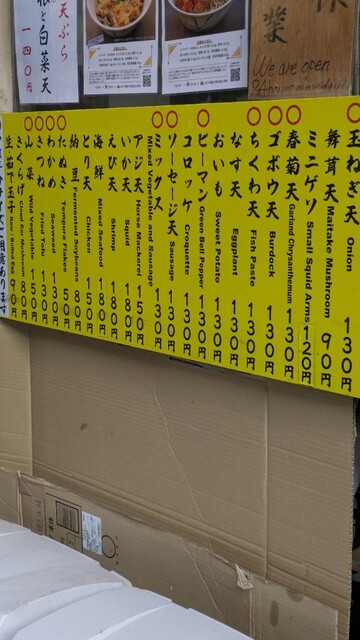 天ぷら
根と白菜天
一四〇円
We are open
玉ねぎ天 Onion 130円
舞茸天 Maitake Mushroom 90円
ミニゲソ Small Squid Arms 120円
春菊天 Garland Chrysanthemum 130円
ゴボウ天 Burdock 130円
ちくわ天 Fish Paste 130円
なす天 Eggplant 130円
おいも Sweet Potato 130円
ピーマン Green Bell Pepper 130円
コロッケ Croquette 130円
ソーセージ天 Sausage 130円
ミックス Mixed Vegetable and Sausage 130円
アジ天 Horse Mackerel 150円
いか天 Squid 180円
えび天 Shrimp 180円
海鮮 Mixed Seafood 180円
とり天 Chicken 150円
納豆 Fermented Soybeans 80円
たぬき Tempura Flakes 50円
わかめ Seaweed
きつね Fried Tofu
山菜 Wild Vegetable 150円
きくらげ Cloud Ear Mushroom 80円
生茹で玉子 80円